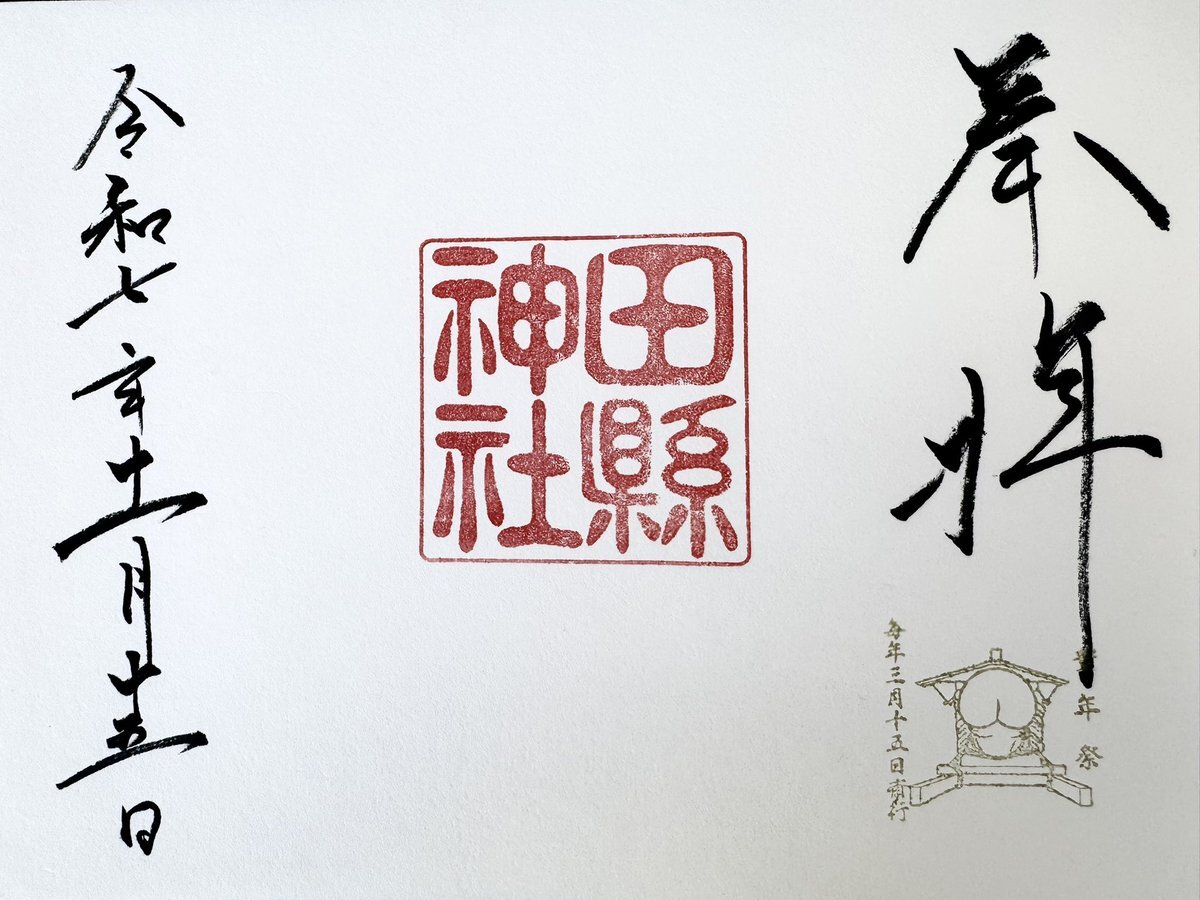 奉拝
豊年祭
毎年三月十五日斎行
田縣
神社
令和七年十一月十五日